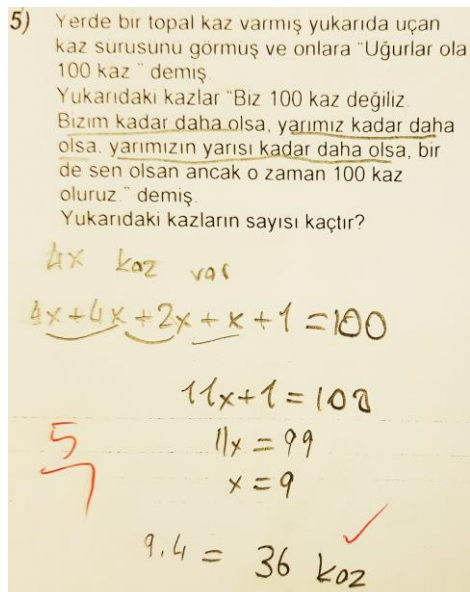 5) Yerde bir topal kaz varmış yukarıda uçan
kaz sürüsünü görmüş ve onlara "Uğurlar ola
100 kaz " demiş.
Yukarıdaki kazlar "Biz 100 kaz değiliz.
Bizim kadar daha olsa, yarımız kadar daha
olsa, yarımızın yarısı kadar daha olsa, bir
de sen olsan ancak o zaman 100 kaz
oluruz." demiş.
Yukarıdaki kazların sayısı kaçtır?
4x kaz var
4x+4x+2x+x+1=100
11x+1=100
11x=99
x=9
5
9.4 = 36 koz